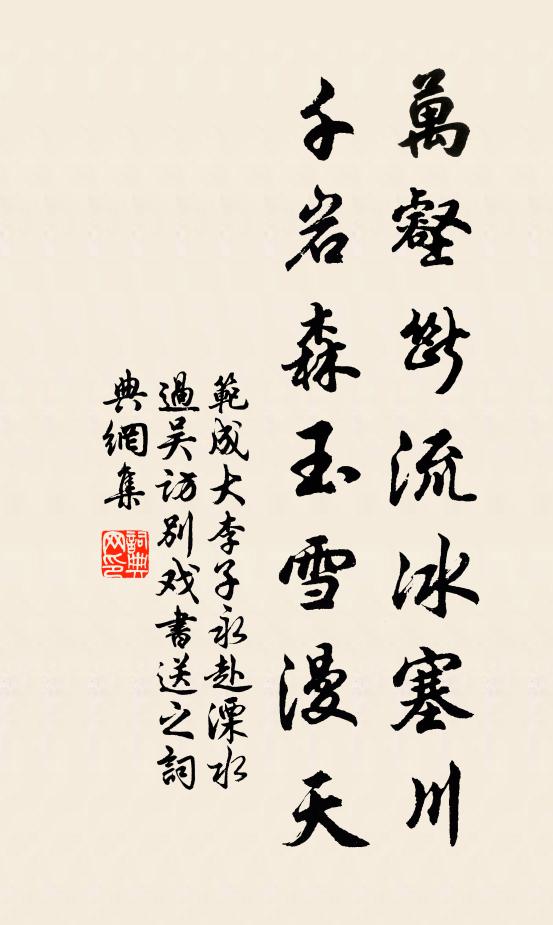 萬壑斷流冰塞川
千岩森玉雪漫天
範成大李子永赴溧水
過吴訪别戏書送之詞
典網集
詞典网印